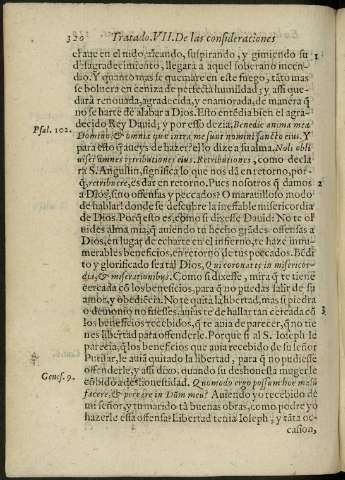 320 Tratado.VII.De las consideraciones
el aue en el nido, aleando, suspirando, y gimiendo su
desagradecimiento, llegará a aquel soberano incen-
dio. Y quanto mas se quemare en este fuego, tãto mas
se boluera en ceniza de perfecta humildad; y assi que-
dará renouada, agradecida, y enamorada, de manera q̃
no se harte de alabar a Dios. Esto entẽdia bien el agra-
decido Rey Dauid; y por esso dezia: Benedic anima mea
Psal. 102. Domino, & omnia quæ intra me sunt nomini sancto eius. Y
para esto q̃ aueys de hazer? el lo dize a su alma. Noli obli
uisci omnes retributiones eius. Retributiones, como decla
ra S. Angustin, significa lo que nos dã en retorno, por-
q̃, retribuere, es dar en retorno. Pues nosotros q̃ damos 2
a Dios, sino ofensas y peccados? O marauilloso modo
de hablar! donde se descubre la inefable misericordia
de Dios. Porq̃ esto es, como si dixesse Dauid: No te ol
uides alma mia, q̃ auiendo tu hecho grãdes ofensas a
Dios, en lugar de echarte en el infierno, te haze innu-
merables beneficios, en retorno de tus peccados. Bẽdi
to y glorificado sea tal Dios, Qui coronat te in misericor-
dia, & miserationibus. Como si dixesse, mira q̃ te tiene
cercada cõ los beneficios, para q̃ no puedas salir de su
amor, y obediẽcia. No te quita la libertad, mas si piedra
o demonio no fuesses, assi as te de hallar tan cercada cõ 3
los beneficios recebidos, q̃ te auia de parecer, q̃ no tie
nes libertad para ofenderle. Porque si al S. Ioseph le
parecia, q̃ los beneficios que auia recebido de su señor
Putifar, le auiã quitado la libertad, para q̃ no pudiesse
ofenderle, y assi dixo, quando su deshonesta muger le
Genes. 9. cõbidó a deshonestidad. Quomodo ergo possum hoc malũ
facere, & peccare in Dũm meũ? Auiendo yo recebido de
mi señor, y tu marido tã buenas obras, como podre yo
hazerle essa offensa? Libertad tenia Ioseph; y tãta oc-
casion,